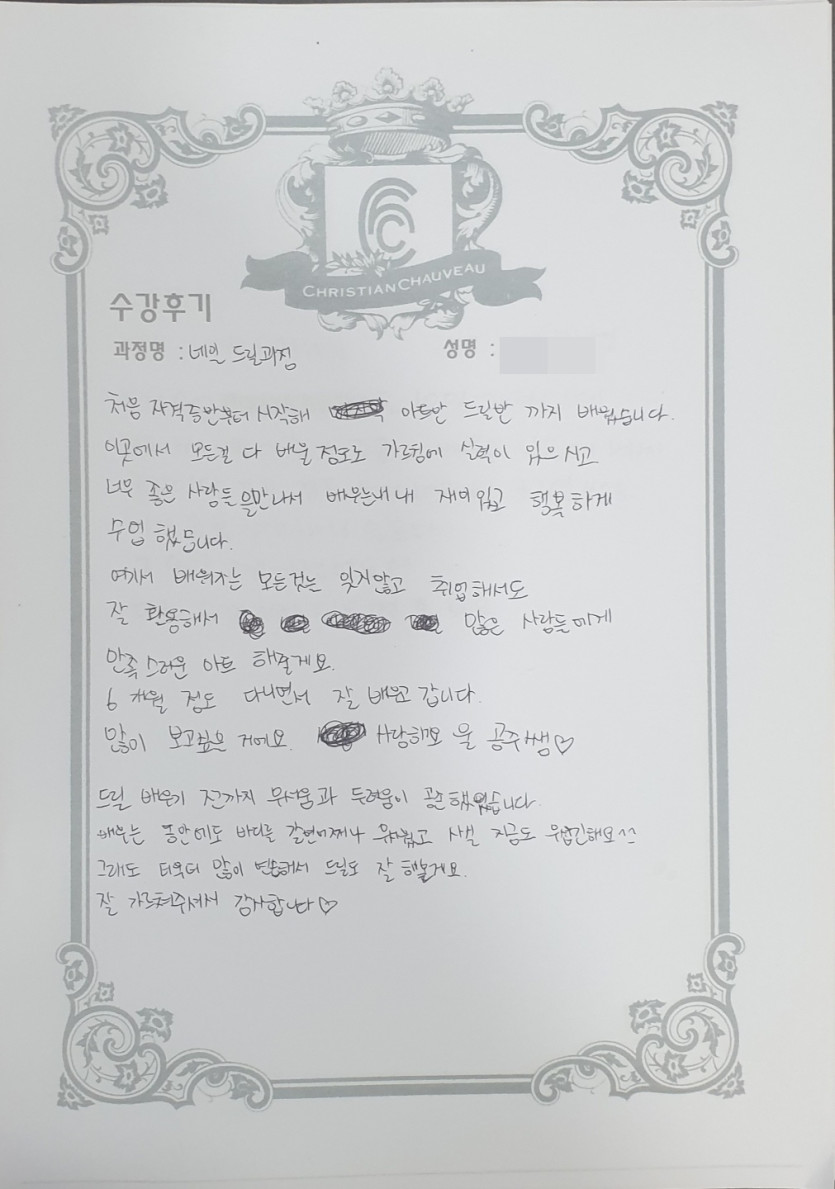 CHRISTIAN CHAUVEAU
수강후기
과정명 : 네일 드릴과정
성명 :
처음 자격증반부터 시작해 아트반 드릴반 까지 배웠습니다.
이곳에서 모든걸 다 배울 정도로 가르침에 실력이 있으시고
너무 좋은 사람들을만나서 배우는내내 재미있고 행복하게
수업 했습니다.
여기서 배워가는 모든것은 잊지않고 취업해서도
잘 활용해서 많은 사람들에게
만족스러운 아트 해줄게요.
6개월 정도 다니면서 잘 배우고 갑니다.
많이 보고싶은 거에요. 사랑해요 울 공주쌤♡
드릴 배우기 전까지 무서움과 두려움이 공존했었습니다.
배우는 동안에도 바디를 갈면어쩌나 무서웠고 사실 지금도 무섭긴해요^^
그래도 더욱더 많이 연습해서 드릴도 잘 해볼게요.
잘 가르쳐주셔서 감사합니다♡